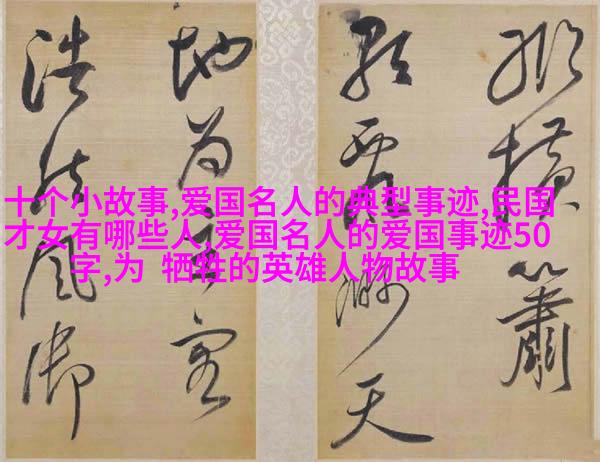 十个小故事,爱国名人的典型事迹,民国
才女有哪些人,爱国名人的爱国事迹50
字,为 牺牲的英雄人物故事
橫簫
天
地為
浩然風御